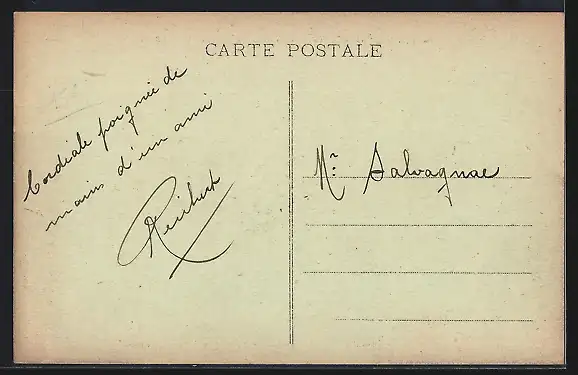 CARTE POSTALE
Cordiale poignée de
main d'un ami
Mr. Salvagnac